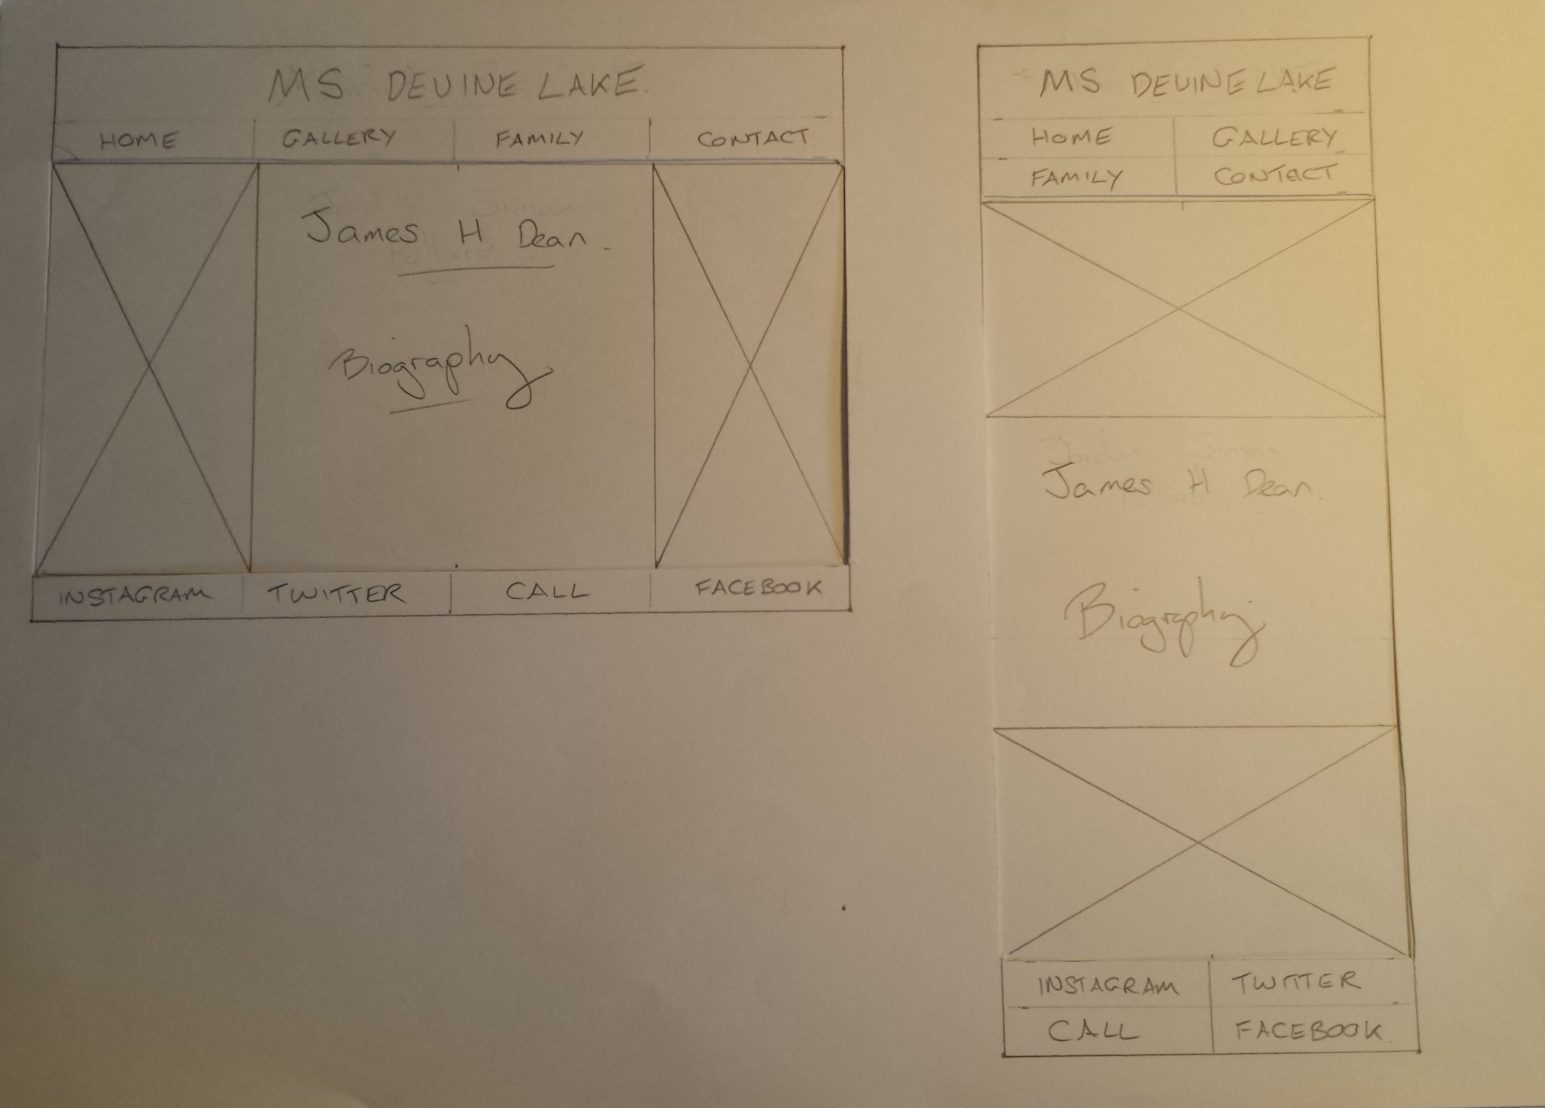 MS DEVINE LAKE.
HOME GALLERY FAMILY CONTACT
James H Dean.
Biography
INSTAGRAM TWITTER CALL FACEBOOK
MS DEVINE LAKE
HOME GALLERY
FAMILY CONTACT
James H Dean.
Biography
INSTAGRAM TWITTER
CALL FACEBOOK